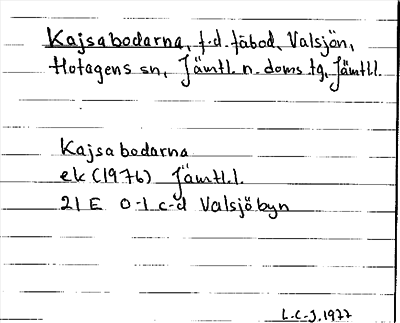 Kajsabodarna, f.d. fäbod, Valsjön,
Hotagens sn, Jämtl. n. doms tg, Jämtl.l.
Kajsabodarna
ek (1976) Jämtl.l.
21 E 0-1 c-d Valsjöbyn
L.C-J. 1977